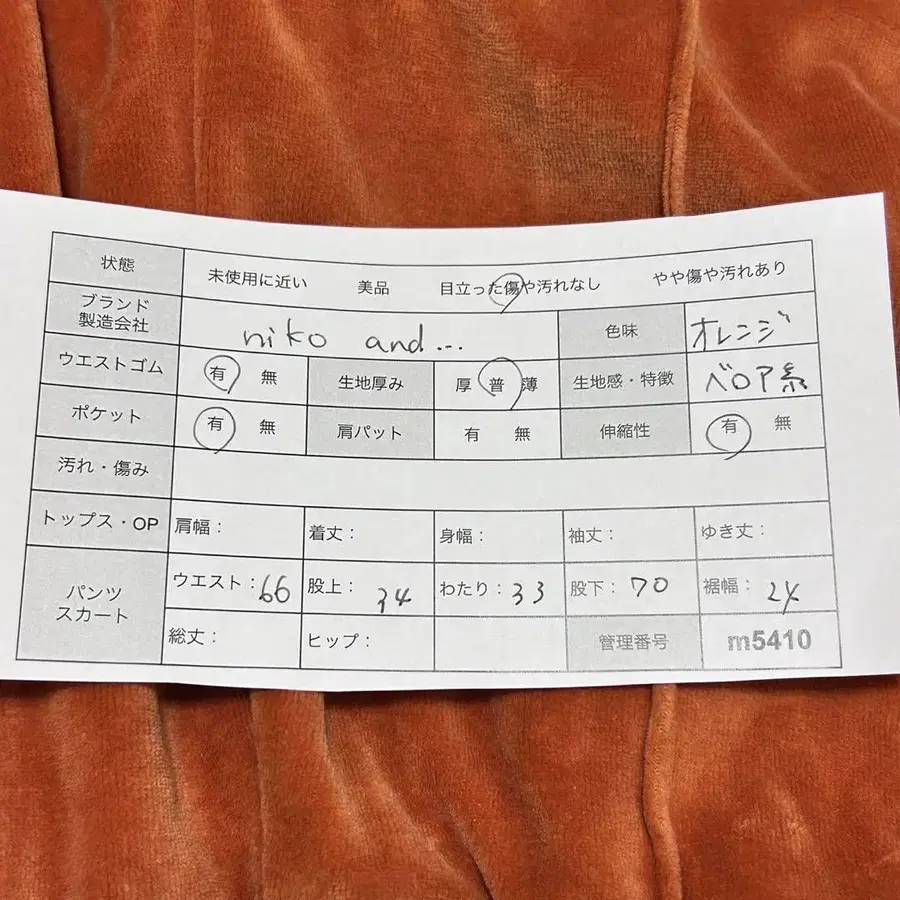 状態 未使用に近い 美品 目立った傷や汚れなし やや傷や汚れあり
ブランド 製造会社 niko and... 色味 オレンジ
ウエストゴム 有 無 生地厚み 厚 普 薄 生地感・特徴 ベロア系
ポケット 有 無 肩パット 有 無 伸縮性 有 無
汚れ・傷み
トップス・OP 肩幅： 着丈： 身幅： 袖丈： ゆき丈：
パンツ スカート ウエスト：66 股上：34 わたり：33 股下：70 裾幅：24
総丈： ヒップ： 管理番号 m5410